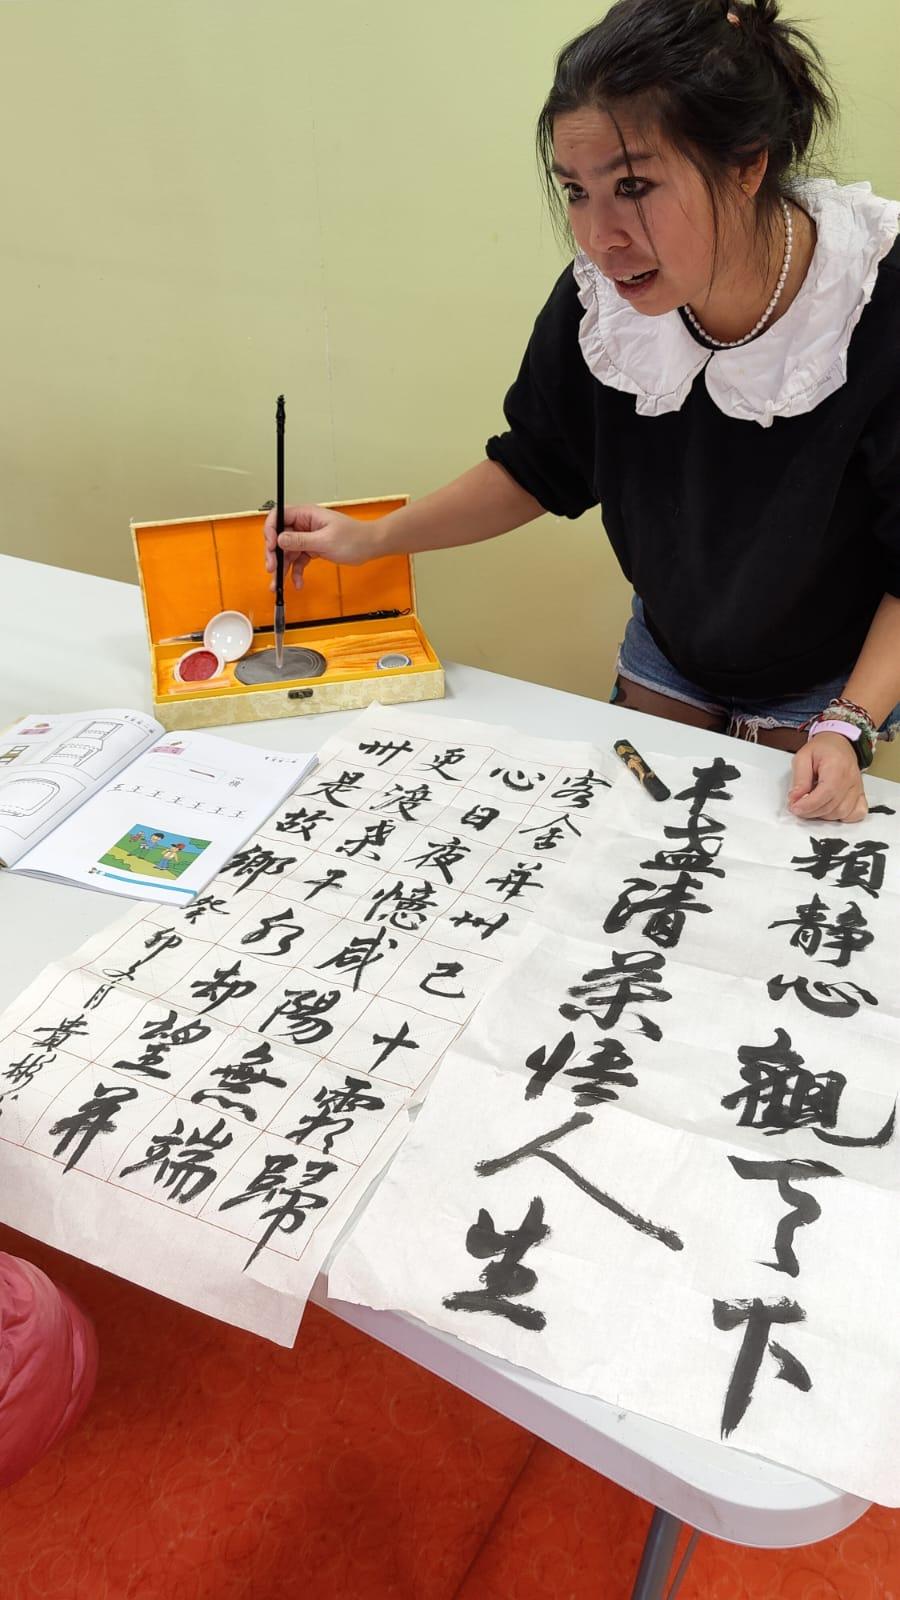 一顆静心觀天下
半盞清茶悟人生
客舍并州已十霜歸
心日夜憶咸陽無端
更渡桑干水却望并
州是故鄉
癸卯夏月黄彬
横